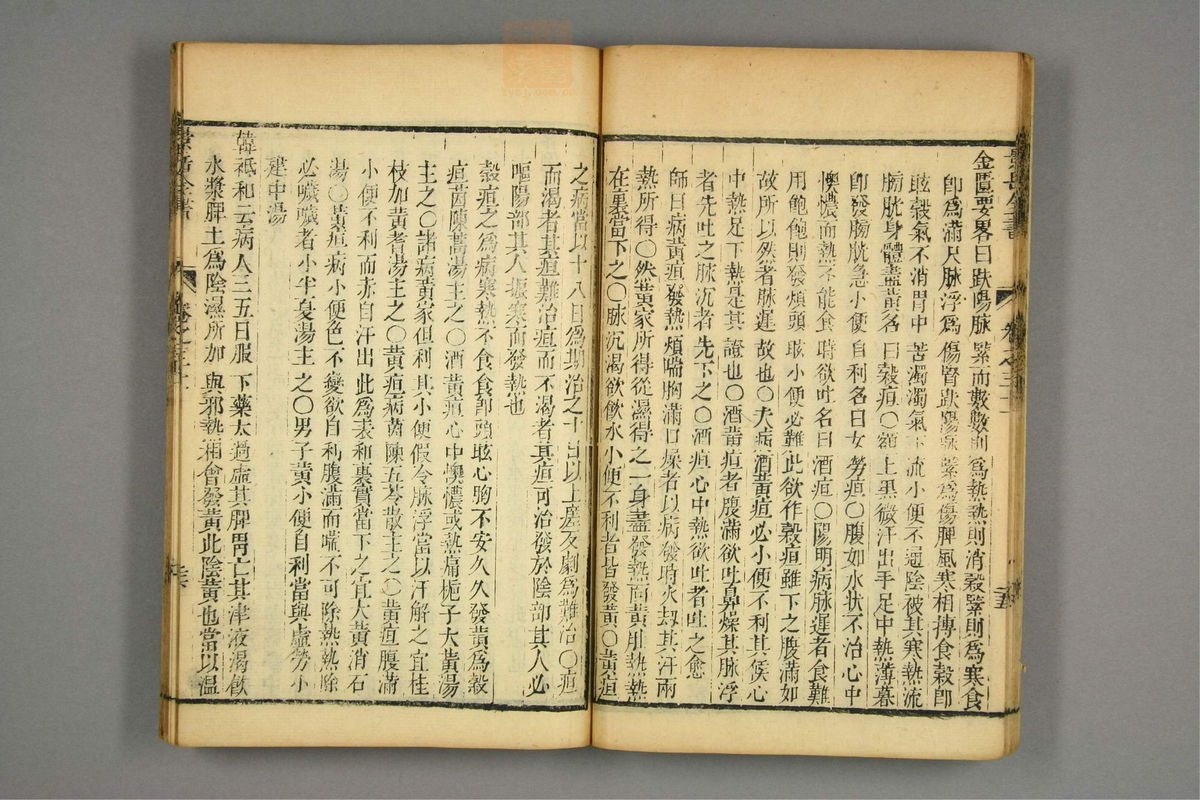 金匱要畧曰趺陽脉緊而數數則爲熱熱則消穀緊則爲寒食
卽爲滿尺脉浮爲傷腎趺陽脉緊爲傷脾風寒相摶食穀卽
眩穀氣不消胃中苦濁濁氣下流小便不通陰被其寒熱流
膀胱身體盡黄名曰穀疸〇額上黒微汗出手足中熱薄暮
卽發膀胱急小便自利名曰女勞疸〇腹如水状不治心中
懊憹而熱不能食時欲吐名曰酒疸〇陽明病脉遲者食難
用飽飽則發煩頭眩小便必難此欲作穀疸雖下之腹滿如
故所以然者脉遲故也〇夫病酒黄疸必小便不利其候心
中熱足下熱是其證也〇酒黄疸者腹滿欲吐鼻燥其脉浮
者先吐之脉沉者先下之〇酒疸心中熱欲吐者吐之愈
師曰病黄疸發熱煩喘胸滿口燥者以病發時火刼其汗兩
熱所得〇然黄家所得從濕得之一身盡發熱而黄肚熱熱
在裏當下之〇脉沉渴欲飲水小便不利者皆發黄〇黄疸
之病當以十八日爲期治之十日以上瘥反劇爲難治〇疸
而渴者其疸難治疸而不渴者其疸可治發於陰部其人必
嘔陽部其人振寒而發熱也
穀疸之爲病寒熱不食食卽頭眩心胸不安久久發黄爲穀
疸茵陳蒿湯主之〇酒黄疸心中懊憹或熱痛梔子大黄湯
主之〇諸病黄家但利其小便假令脉浮當以汗解之宜桂
枝加黄耆湯主之〇黄疸病茵陳五苓散主之〇黄疸腹滿
小便不利而赤自汗出此爲表和裏實當下之宜大黄消石
湯〇黄疸病小便色不變欲自利腹滿而喘不可除熱熱除
必噦噦者小半夏湯主之〇男子黄小便自利當與虛勞小
建中湯
韓祗和云病人三五日服下藥太過虛其脾胃亡其津液渴飲
水漿脾土爲陰濕所加與邪熱相會發黄此陰黄也當以温